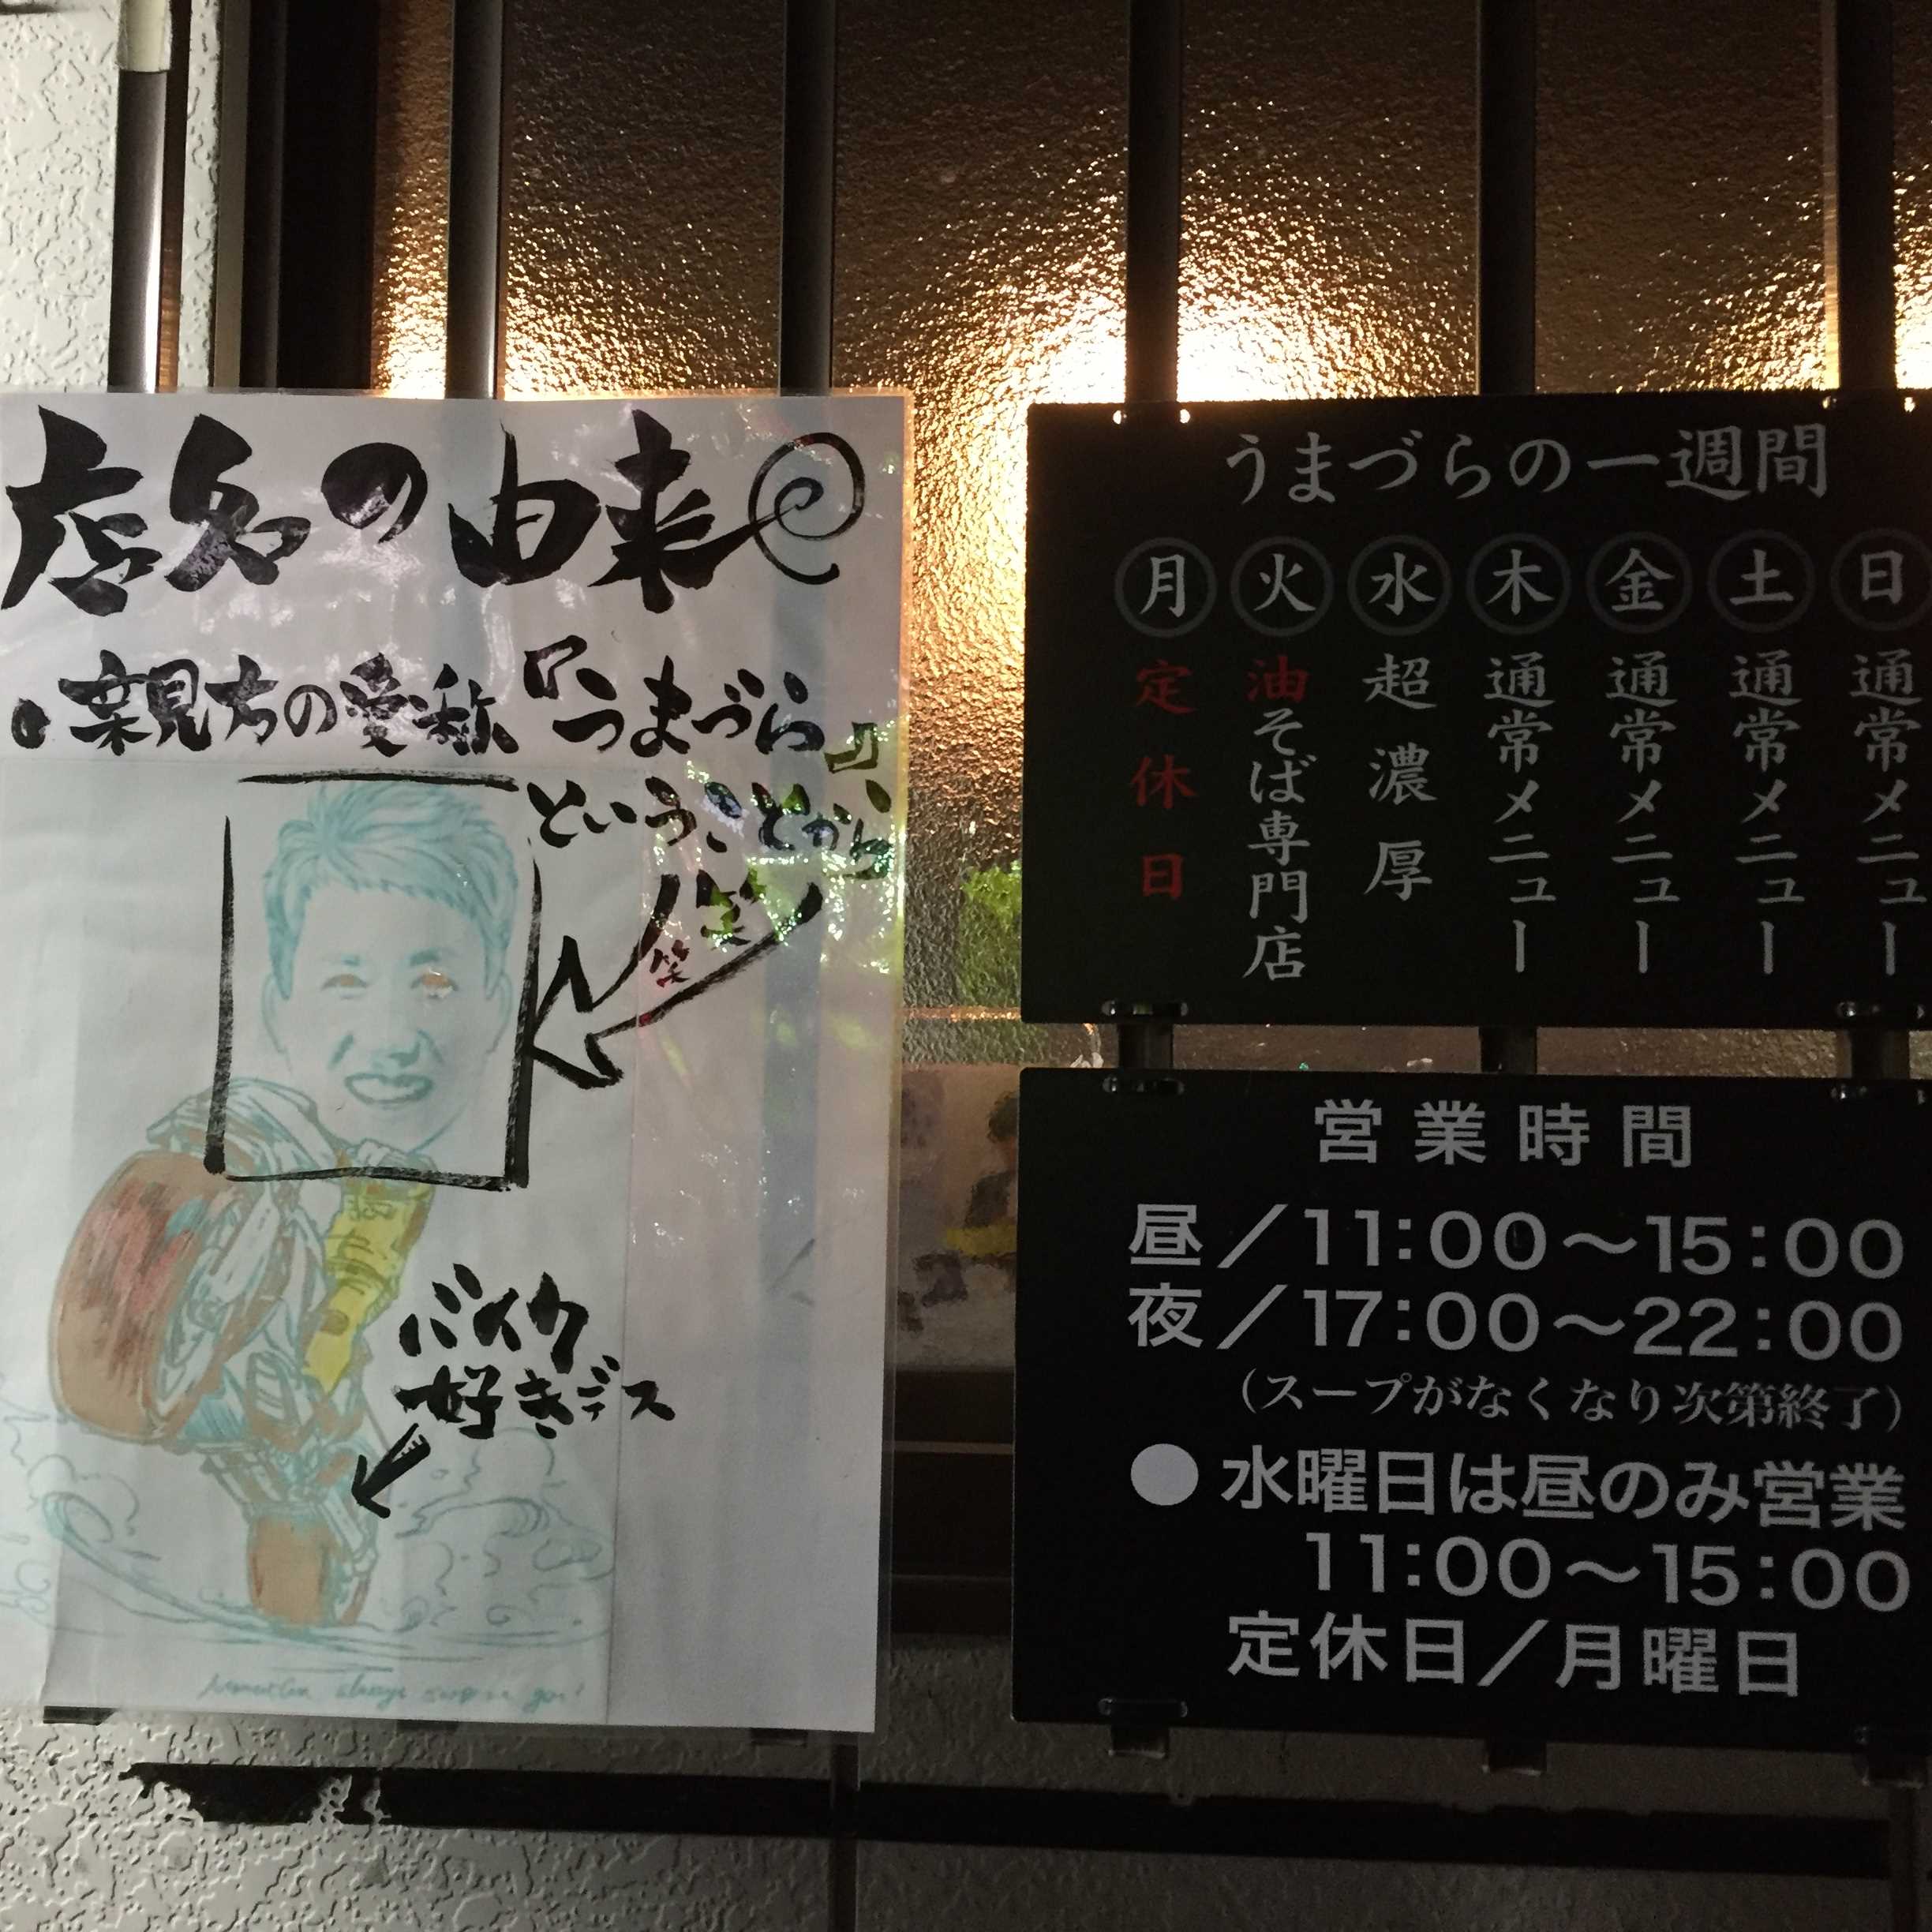 店名の由来
・親方の愛称『うまづら』
ということから
笑
笑
バイク
好きデス
うまづらの一週間
月 火 水 木 金 土 日
定休日
油そば専門店
超濃厚
通常メニュー
通常メニュー
通常メニュー
通常メニュー
営業時間
昼／11:00〜15:00
夜／17:00〜22:00
（スープがなくなり次第終了）
●水曜日は昼のみ営業
11:00〜15:00
定休日／月曜日